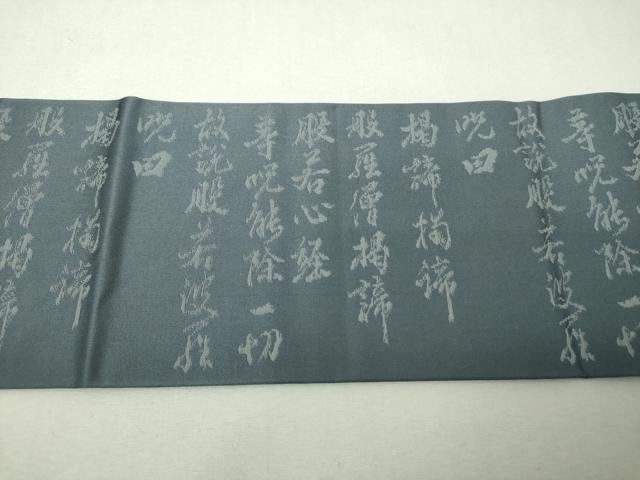 般若
等呪能除一切
故説般若波羅
呪曰
揭諦揭諦
般羅僧揭諦
般若心經
等呪能除一切
故説般若波羅
呪曰
揭諦揭諦
般羅僧揭諦